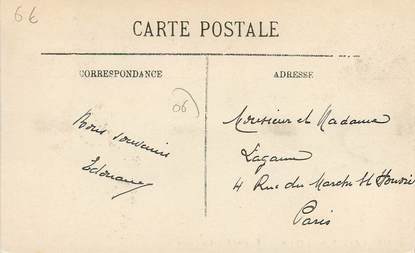 6€
CARTE POSTALE
CORRESPONDANCE
ADRESSE
06
Bons souvenirs
Edouard
Monsieur et Madame
4 Rue du Marché St Honoré
Paris